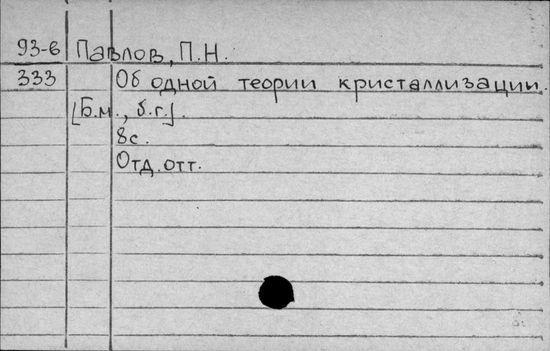 93-6 Павлов, П.Н.
333 Об одной теории кристаллизации.
[Б.м., б.г.].
8с.
Отд. отт.